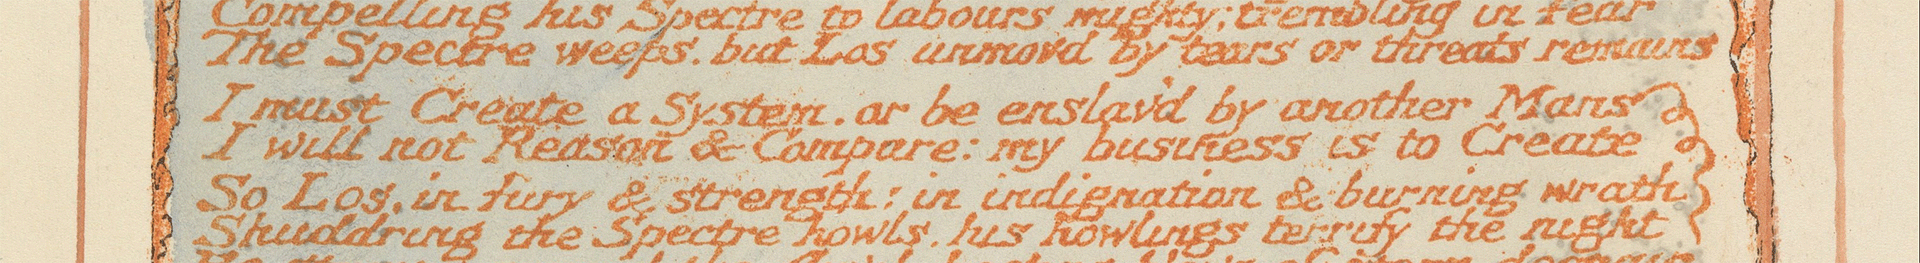 Compelling his Spectre to labours mighty; trembling in fear
The Spectre weeps, but Los unmovd by tears or threats remains
I must Create a System, or be enslav'd by another Mans
I will not Reason & Compare: my business is to Create
So Los, in fury & strength: in indignation & burning wrath
Shuddring the Spectre howls, his howlings terrify the night